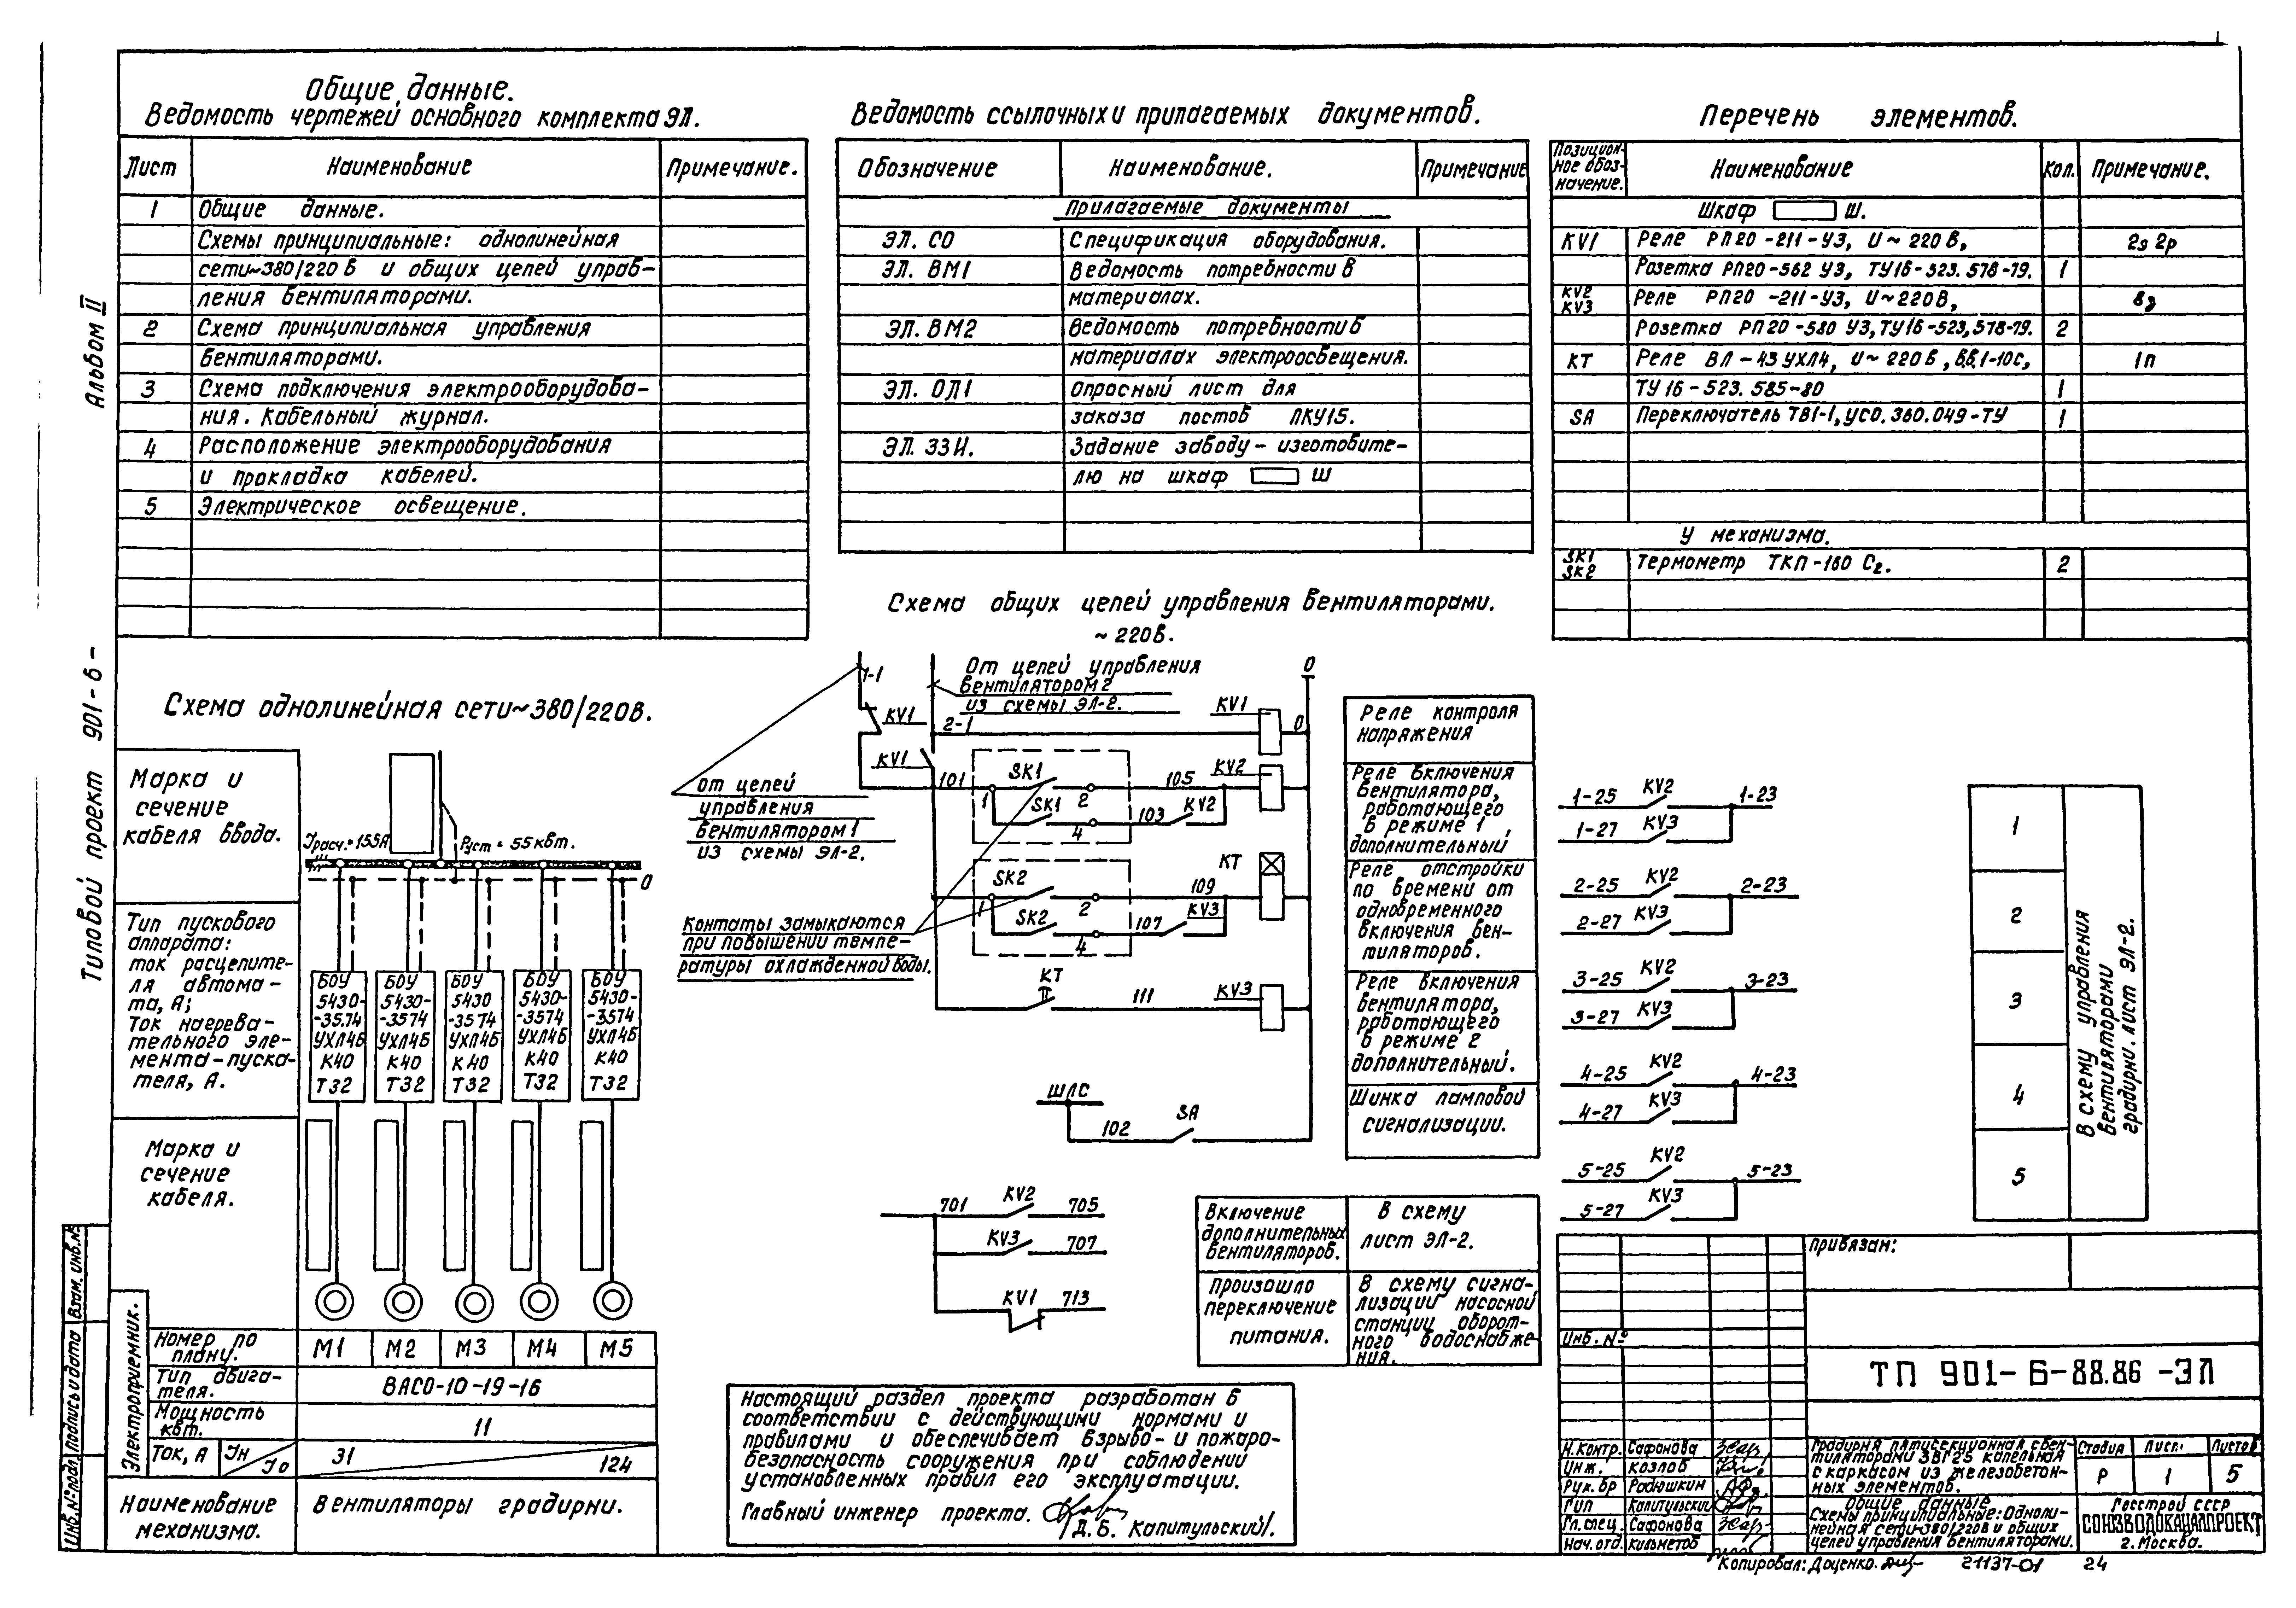 Общие данные.
Ведомость чертежей основного комплекта ЭЛ.
Лист Наименование Примечание.
1 Общие данные.
Схемы принципиальные: однолинейная
сети~380/220 В и общих цепей управ-
ления вентиляторами.
2 Схема принципиальная управления
вентиляторами.
3 Схема подключения электрооборудова-
ния. Кабельный журнал.
4 Расположение электрооборудования
и прокладка кабелей.
5 Электрическое освещение.
Ведомость ссылочных и прилагаемых документов.
Обозначение Наименование. Примечание
Прилагаемые документы
ЭЛ. СО Спецификация оборудования.
ЭЛ. ВМ1 Ведомость потребности в
материалах.
ЭЛ. ВМ2 Ведомость потребности в
материалах электроосвещения.
ЭЛ. ОЛ1 Опросный лист для
заказа постов ПКУ15.
ЭЛ. ЗЗИ. Задание заводу - изготовите-
лю на шкаф Ш
Перечень элементов.
Позицион-
ное обоз-
начение.
Наименование Кол. Примечание.
Шкаф Ш.
KV1 Реле РП20-211-У3, U~220 В, 2з 2р
Розетка РП20-562 У3, ТУ16-523.578-79. 1
KV2
KV3
Реле РП20-211-У3, U~220В, 8з
Розетка РП20-580 У3, ТУ16-523,578-79. 2
КТ Реле ВЛ-43 УХЛ4, U~220 В, В.В.1-10с, 1п
ТУ 16-523.585-80 1
SA Переключатель ТВ1-1, УСО.360.049-ТУ 1
У механизма.
SK1
SK2
Термометр ТКП-160 Сг. 2
Альбом II
Типовой проект 901-6-
Схема однолинейная сети~380/220В.
Марка и
сечение
кабеля ввода.
Iрасч.=155А Руст = 55квт.
0
Тип пускового
аппарата:
ток расцепите-
ля автома-
та, А;
Ток нагрева-
тельного эле-
мента-пуска-
теля, А.
БОУ БОУ БОУ БОУ БОУ
5430- 5430- 5430 5430- 5430-
-3574 -3574 -3574 -3574 -3574
УХЛ4Б УХЛ4Б УХЛ4Б УХЛ4Б УХЛ4Б
К40 К40 К40 К40 К40
Т32 Т32 Т32 Т32 Т32
Марка и
сечение
кабеля.
Электроприемник.
Номер по
плану.
М1 М2 М3 М4 М5
Тип двига-
теля.
ВАСО-10-19-16
Мощность
квт.
11
Ток, А Iн Iо 31 124
Наименование
механизма.
Вентиляторы градирни.
Схема общих цепей управления вентиляторами.
~ 220В.
1-1
От цепей управления
вентилятором 2
из схемы ЭЛ-2.
0
KV1 2-1 KV1 0
KV1 101 SK1 105 KV2
1 2
SK1 103 KV2
4
От цепей
управления
вентилятором 1
из схемы ЭЛ-2.
КТ
SK2 109
1 2
SK2 107 KV3
4
Контаты замыкаются
при повышении темпе-
ратуры охлажденной воды.
КТ 111 KV3
ШЛС
102 SA
Реле контроля
напряжения
Реле включения
вентилятора,
работающего
в режиме 1
дополнительный
Реле отстройки
по времени от
одновременного
включения вен-
тиляторов.
Реле включения
вентилятора,
работающего
в режиме 2
дополнительный.
Шинка ламповой
сигнализации.
701 KV2 705
KV3 707
KV1 713
Включение
дополнительных
вентиляторов.
В схему
лист ЭЛ-2.
Произошло
переключение
питания.
В схему сигна-
лизации насосной
станции оборот-
ного водоснабже-
ния.
1-25 KV2 1-23
1-27 KV3
2-25 KV2 2-23
2-27 KV3
3-25 KV2 3-23
3-27 KV3
4-25 KV2 4-23
4-27 KV3
5-25 KV2 5-23
5-27 KV3
1
2
3
4
5
В схему управления
вентиляторами
градирни. лист ЭЛ-2.
Настоящий раздел проекта разработан в
соответствии с действующими нормами и
правилами и обеспечивает взрыво- и пожаро-
безопасность сооружения при соблюдении
установленных правил его эксплуатации.
Главный инженер проекта. /Д.Б. Капитульский/.
Привязан:
Инв. №
ТП 901-6-88.86 -ЭЛ
Н.контр. Сафонова
Инж. Козлов
Рук. бр Радюшкин
Гип Капитульский
Гл. спец. Сафонова
Нач. отд. Кильметов
Градирня пятисекционная с вен-
тиляторами 3ВГ25 капельная
с каркасом из железобетон-
ных элементов.
Стадия Лист. Листов
Р 1 5
Общие данные
Схемы принципиальные: Одноли-
нейная сети~380/220В и общих
цепей управления вентиляторами.
Госстрой СССР
СОЮЗВОДОКАНАЛПРОЕКТ
г. Москва.
Копировал: Доценко. 21137-01 24
Инв. № подл. Подпись и дата Взам. инв. №